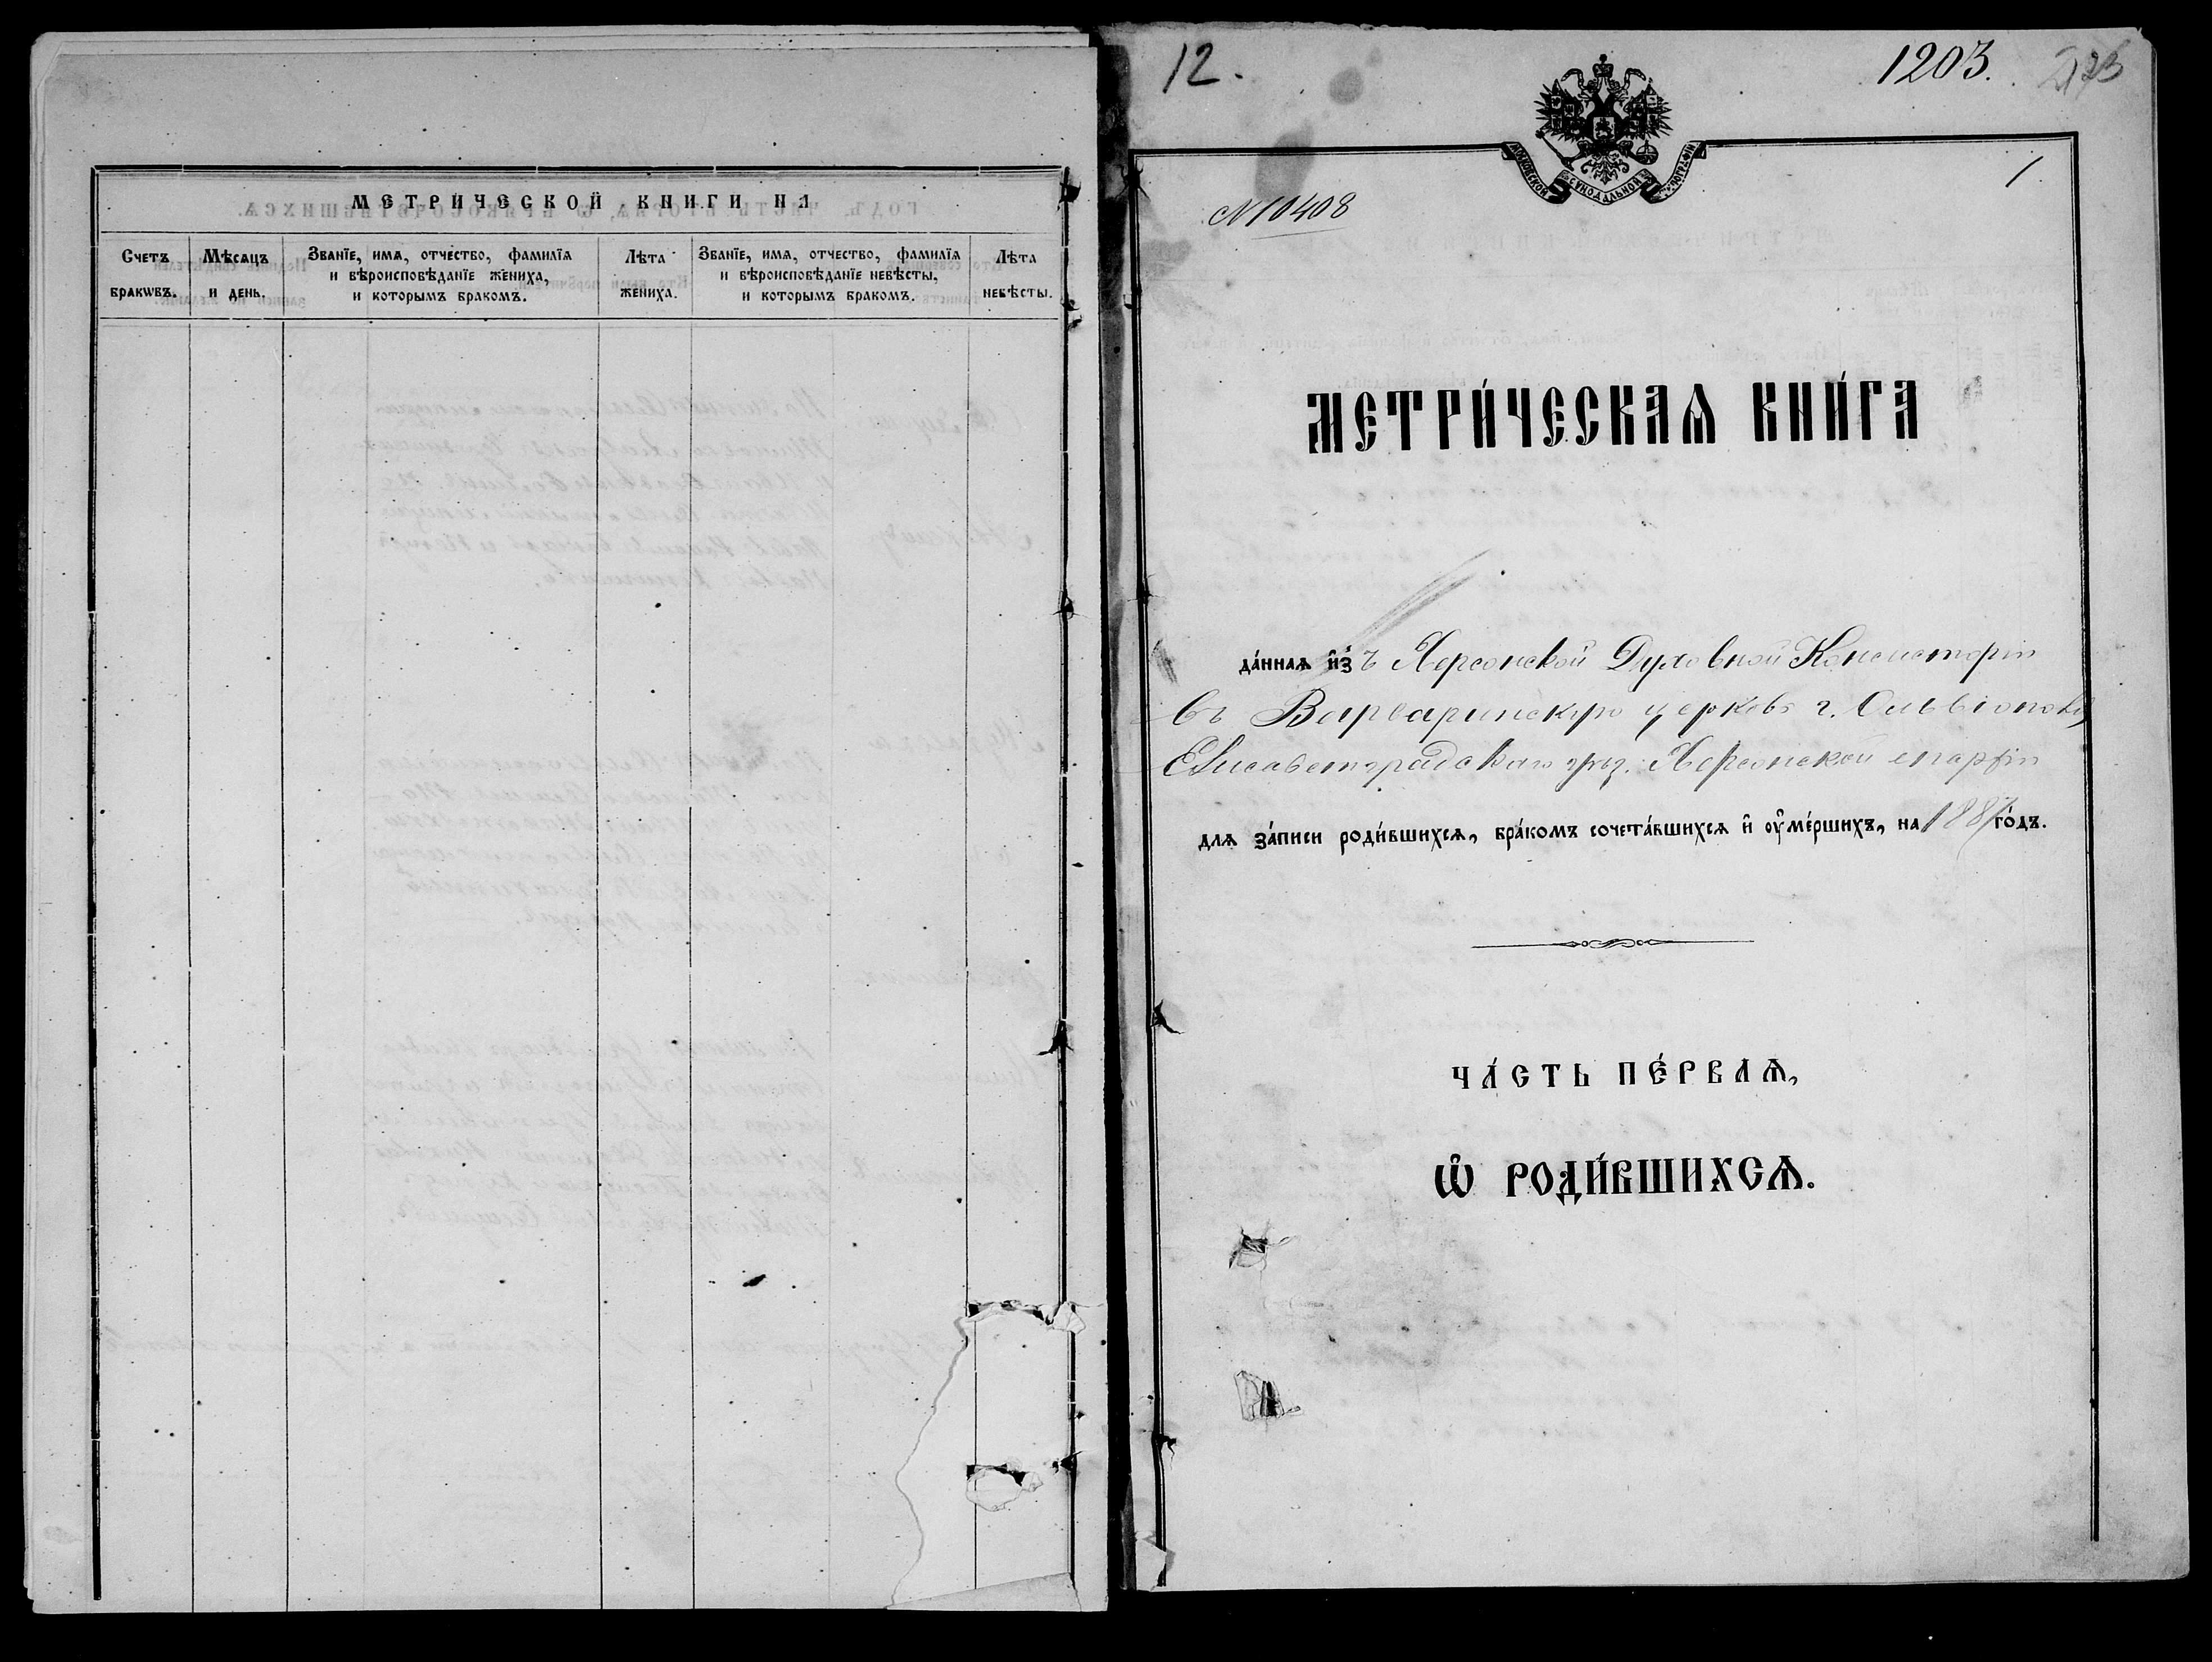 МЕТРИЧЕСКОЙ КНИГИ НА
Счетъ бракѡвъ.
Мѣсѧцъ и день.
Званїе, имѧ, отчество, фамилїѧ и вѣроисповѣданїе жениха, и которымъ бракомъ.
Лѣта жениха.
Званїе, имѧ, отчество, фамилїѧ и вѣроисповѣданїе невѣсты, и которымъ бракомъ.
Лѣта невѣсты.
12.
1203.
1
МОСКОВСКОЙ СѴНОДАЛЬНОЙ ТИПОГРАФІИ
№ 10408
МЕТРИ́ЧЕСКАѦ КНИ́ГА
да́ннаѧ и҆зъ Херсонской Духовной Консисторіи
въ Варваринскую церковь г. Ольвіополя
Елисаветградскаго уѣз. Херсонской епархіи
длѧ за́писи роди́вшихсѧ, бра́комъ сочета́вшихсѧ и҆ ᲂу҆ме́ршихъ, на 1887 го́дъ.
ЧА́СТЬ ПЕ́РВАѦ,
Ѽ РОДИ́ВШИХСѦ.